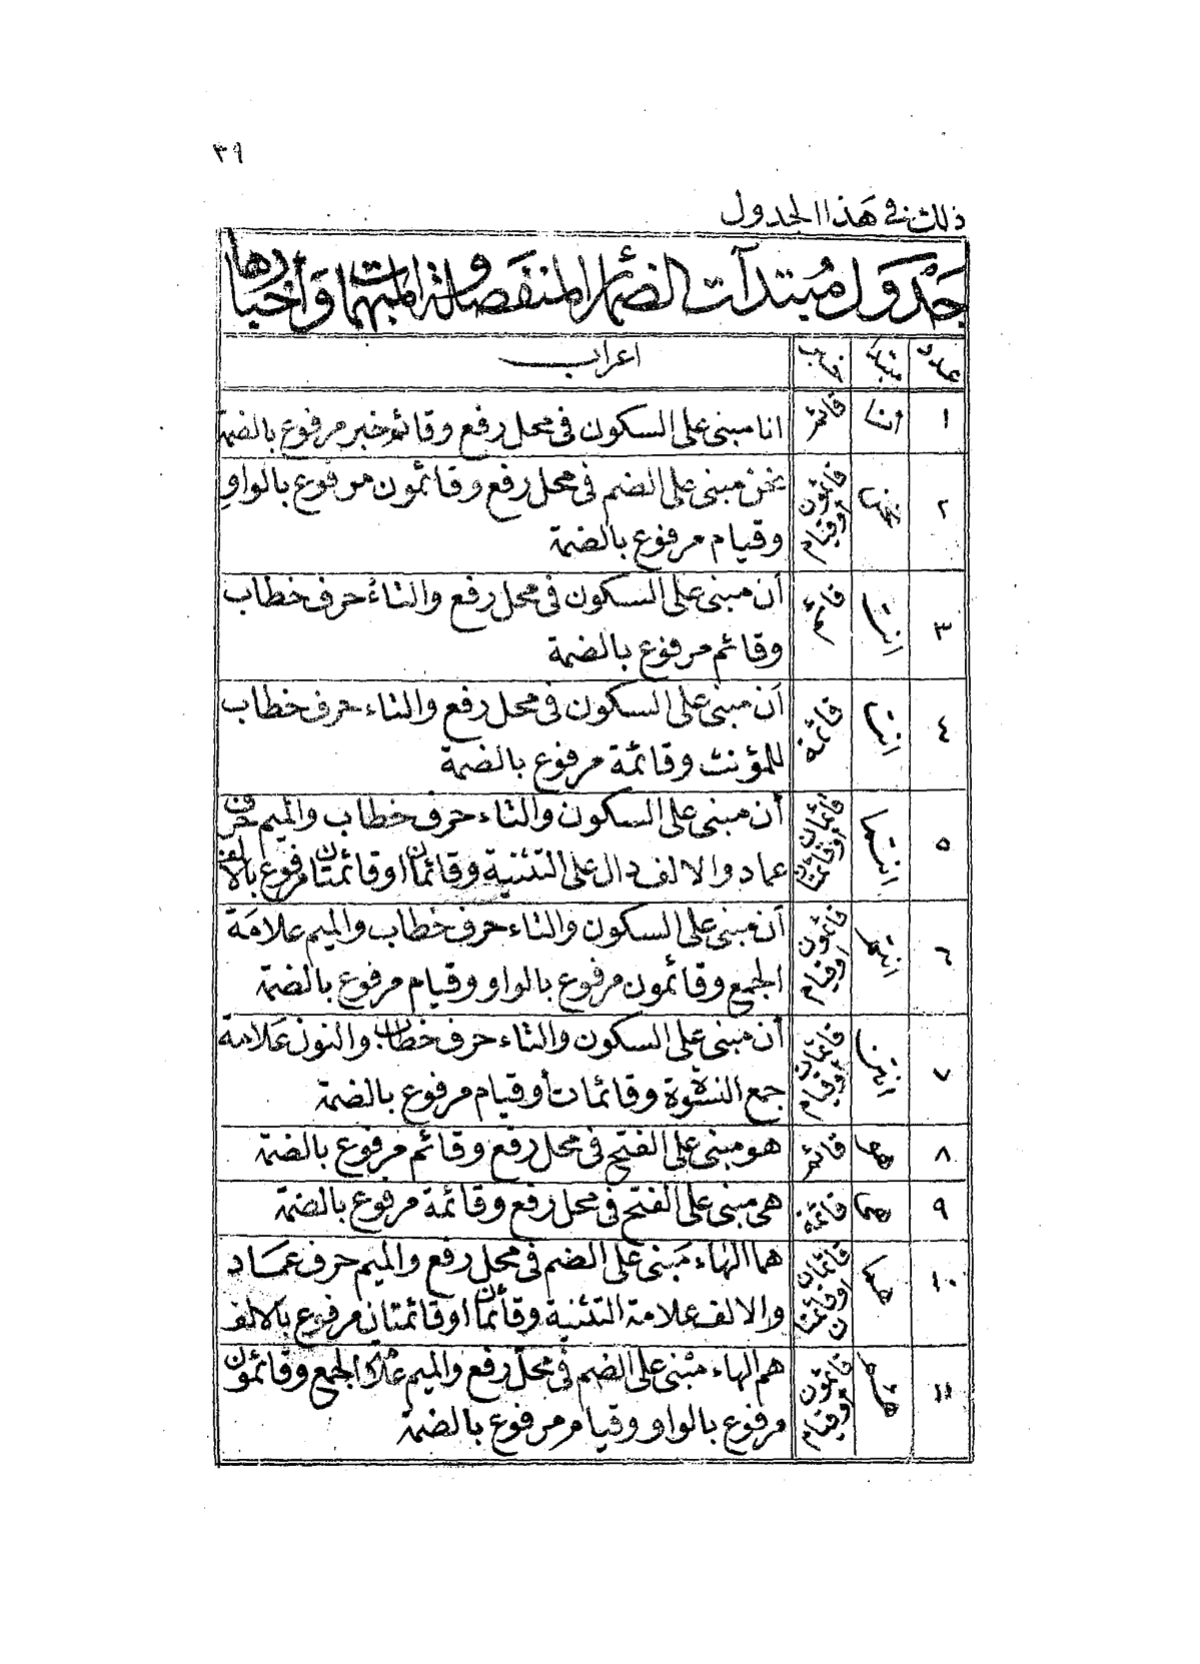 ٣٩
ذلك في هذا الجدول
جدول مبتدآت الضمائر المنفصلة والمبهمات وأخبارها
عدد مبتدأ خبر اعراب
١ أنا قائم انا مبنى على السكون فى محل رفع وقائم خبر مرفوع بالضمة
٢ نحن قائمون أو قيام نحن مبنى على الضم فى محل رفع وقائمون مرفوع بالواو
وقيام مرفوع بالضمة
٣ انت قائم أن مبنى على السكون فى محل رفع والتاءُ حرف خطاب
وقائم مرفوع بالضمة
٤ انت قائمة أن مبنى على السكون فى محل رفع والتاء حرف خطاب
للمؤنث وقائمة مرفوع بالضمة
٥ انتما قائمان أو قائمتان أن مبنى على السكون والتاء حرف خطاب والميم حرف
عماد والالف دال على التثنية وقائمان او قائمتان مرفوع بالالف
٦ انتم قائمون أو قيام أن مبنى على السكون والتاء حرف خطاب والميم علامَة
الجمع وقائمون مرفوع بالواو وقيام مرفوع بالضمة
٧ انتن قائمات أو قيام أن مبنى على السكون والتاء حرف خطاب والنون علامة
جمع النسوة وقائمات أو قيام مرفوع بالضمة
٨ هو قائم هو مبنى على الفتح فى محل رفع وقائم مرفوع بالضمة
٩ هما قائمة هى مبنى على الفتح فى محل رفع وقائمة مرفوع بالضمة
١٠ هما قائمان او قائمتان هما الهاء مبنى على الضم فى محل رفع والميم حرف عماد
والالف علامة التثنية وقائمان او قائمتان مرفوع بالالف
١١ هم قائمون أو قيام هم الهاء مبنى على الضم فى محل رفع والميم علامة الجمع وقائمون
مرفوع بالواو وقيام مرفوع بالضمة